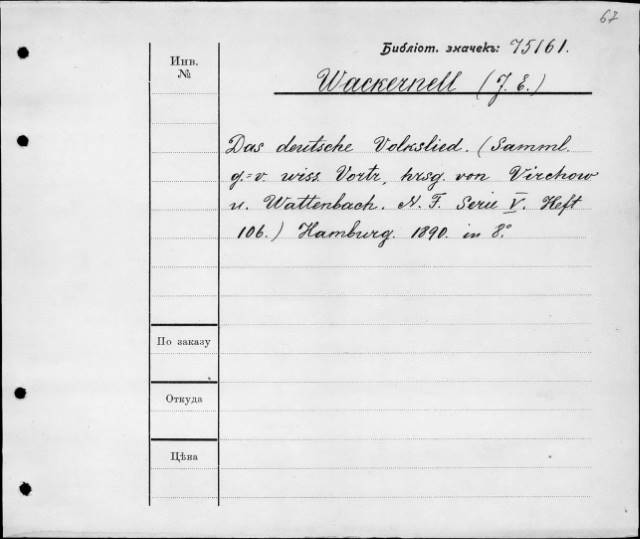 67
Библіот. значекъ: 75161.
Инв.
№
Wackernell (J. E.)
Das deutsche Volkslied. (Samml.
g.=v. wiss. Vortr., hrsg. von Virchow
u. Wattenbach. N. F. Serie V. Heft
106.) Hamburg. 1890. in 8.°
По заказу
Откуда
Цѣна